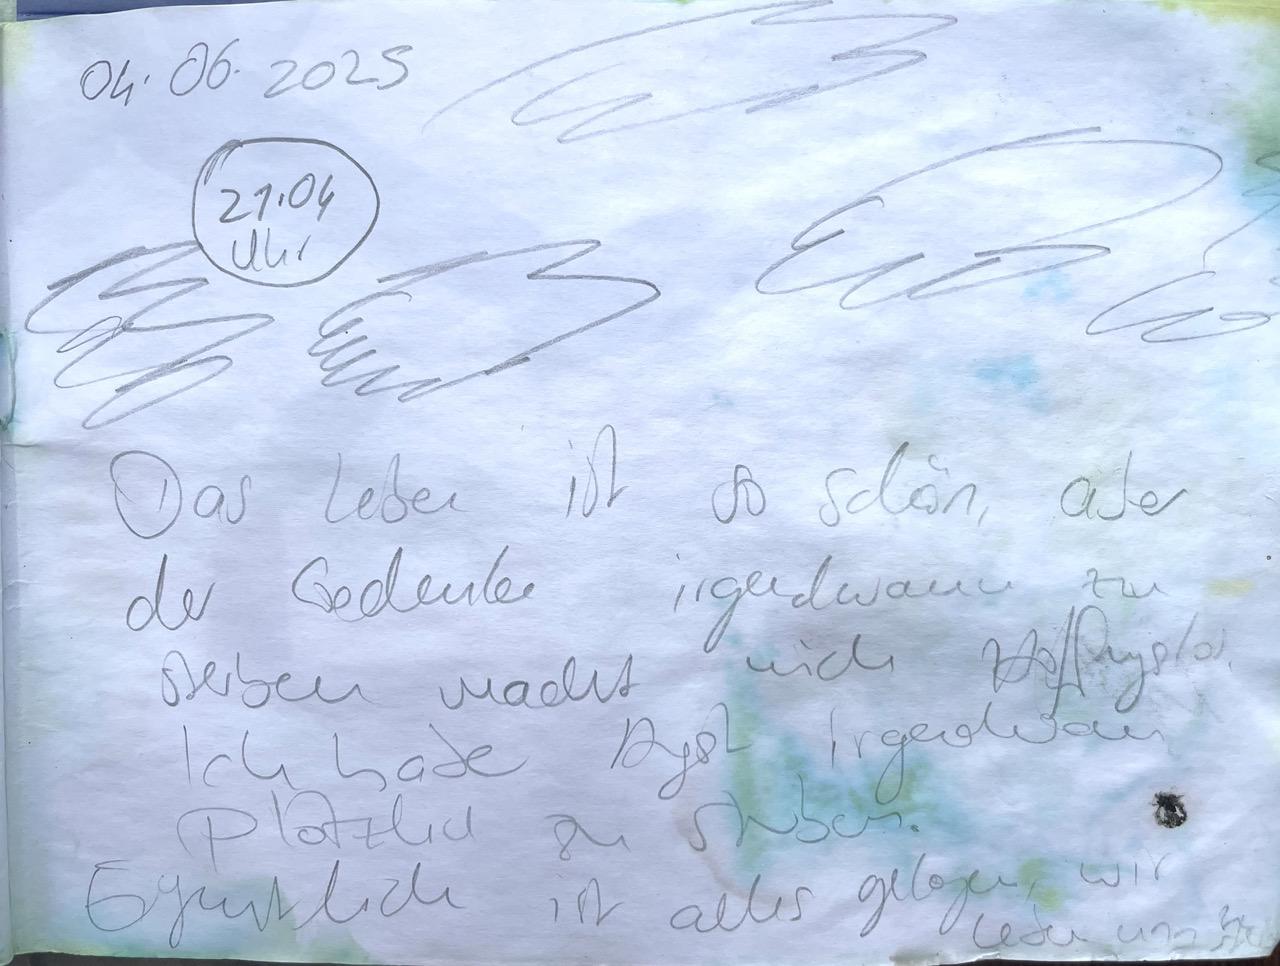 04.06.2025
21:04
Uhr
Das Leben ist so schön, aber
der Gedenke irgendwann zu
sterben macht mich Hoffnugslos.
Ich habe Agst Irgendwan
plötzlich zu sterben.
Egentlich ist alles gelogen, wir
leben um zu